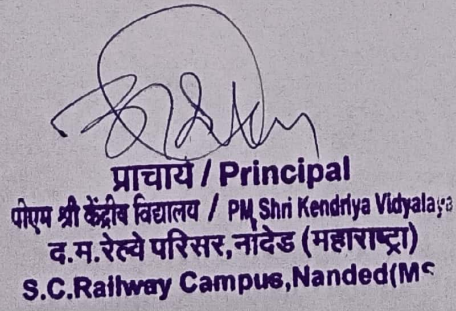 प्राचार्य / Principal
पीएम श्री केंद्रीय विद्यालय / PM Shri Kendriya Vidyalaya
द.म.रेल्वे परिसर,नांदेड (महाराष्ट्रा)
S.C.Railway Campus,Nanded(MS